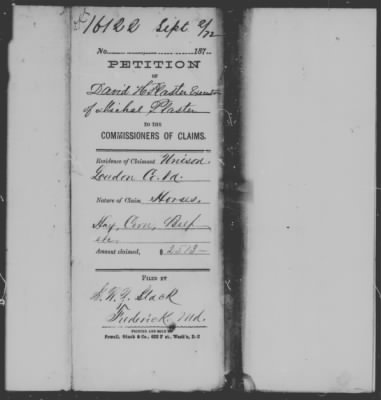 16122 Sept 2/72
No. 187
PETITION
OF
David H Plaster Executor
of Michal Plaster
TO THE
COMMISSIONERS OF CLAIMS.
Residence of Claimant Unison
Louden Co.
Nature of Claim Horses,
Hay, Corn, Beef
etc.
Amount claimed, $2513
FILED BY
Stack
Frederick, Md.
PRINTED AND SOLD BY
Powell, Ginck & Co., 632 F st., Wash'n, D.C